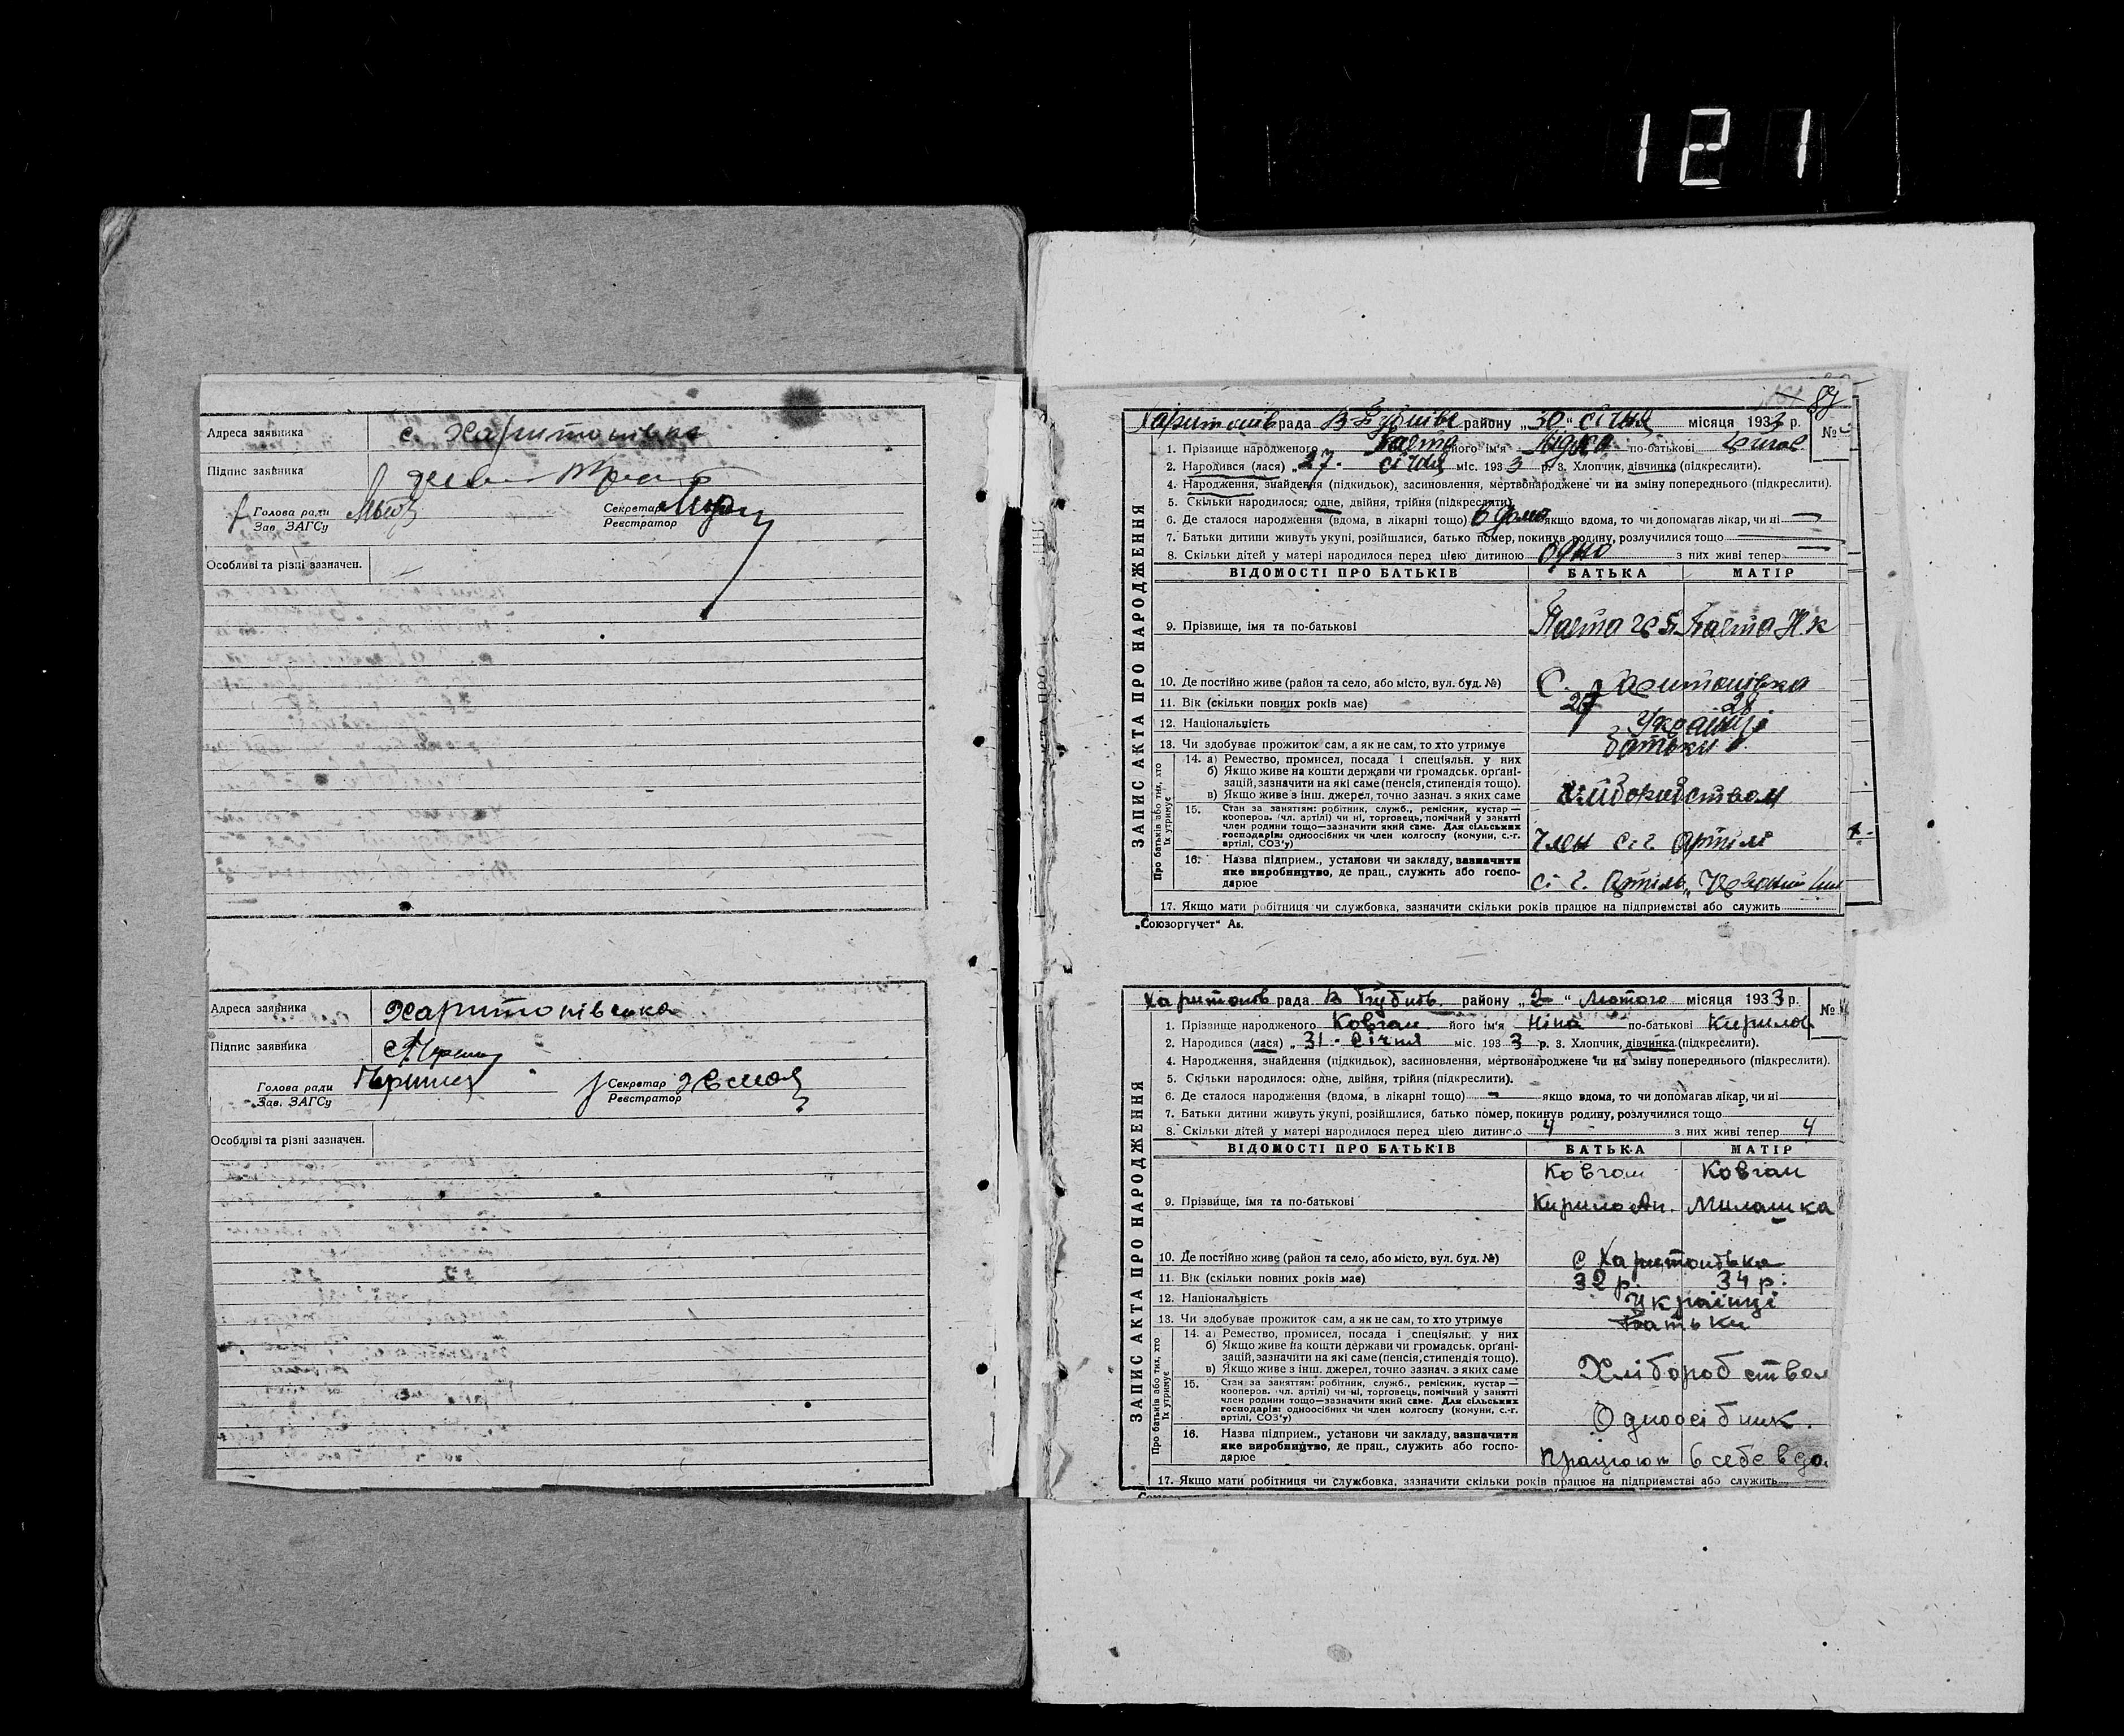 121
Адреса заявника с. Харитонівка
Підпис заявника
Голова ради
Зав. ЗАГСу
Секретар
Реєстратор
Особливі та різні зазначен.
Адреса заявника Харитонівка
Підпис заявника
Голова ради
Зав. ЗАГСу
Секретар
Реєстратор
Особливі та різні зазначен.
89
ЗАПИС АКТА ПРО НАРОДЖЕННЯ
Харитонів рада району „30“ січня місяця 1933 р.
№
1. Прізвище народженого його ім'я по-батькові
2. Народився (лася) „27. січня міс. 1933 р. 3. Хлопчик, дівчинка (підкреслити).
4. Народження, знайдення (підкидьок), засиновлення, мертвонароджене чи на зміну попереднього (підкреслити).
5. Скільки народилося: одне, двійня, трійня (підкреслити).
6. Де сталося народження (вдома, в лікарні тощо) вдома якщо вдома, то чи допомагав лікар, чи ні —
7. Батьки дитини живуть укупі, розійшлися, батько помер, покинув родину, розлучилися тощо —
8. Скільки дітей у матері народилося перед цією дитиною одно з них живі тепер —
ВІДОМОСТІ ПРО БАТЬКІВ БАТЬКА МАТІР
9. Прізвище, імя та по-батькові
10. Де постійно живе (район та село, або місто, вул. буд. №) С. Харитонівка
11. Вік (скільки повних років має) 27 28
12. Національність Українці
13. Чи здобуває прожиток сам, а як не сам, то хто утримує батьки
Про батьків або тих, хто їх утримує
14. а) Ремество, промисел, посада і спеціяльн. у них
б) Якщо живе на кошти держави чи громадськ. органі-
зацій, зазначити на які саме (пенсія, стипендія тощо).
в) Якщо живе з інш. джерел, точно зазнач. з яких саме
хліборобством
15. Стан за заняттям: робітник, служб., ремісник, кустар —
кооперов. (чл. артілі) чи ні, торговець, помічний у занятті
член родини тощо—зазначити який саме. Для сільських
господарів: одноосібних чи член колгоспу (комуни, с.-г.
артілі, СОЗ'у)
Член с. г. Артілі
16. Назва підприєм., установи чи закладу, зазначити
яке виробництво, де прац., служить або госпо-
дарює
с. г. Артіль
17. Якщо мати робітниця чи службовка, зазначити скільки років працює на підприємстві або служить
„Союзоргучет“ Ав.
ЗАПИС АКТА ПРО НАРОДЖЕННЯ
Харитонів рада В Бубнів. району „2“ Лютого місяця 1933 р.
№
1. Прізвище народженого Ковган його ім'я Ніна по-батькові Кирилов
2. Народився (лася) „31. Січня міс. 1933 р. 3. Хлопчик, дівчинка (підкреслити).
4. Народження, знайдення (підкидьок), засиновлення, мертвонароджене чи на зміну попереднього (підкреслити).
5. Скільки народилося: одне, двійня, трійня (підкреслити).
6. Де сталося народження (вдома, в лікарні тощо) — якщо вдома, то чи допомагав лікар, чи ні
7. Батьки дитини живуть укупі, розійшлися, батько помер, покинув родину, розлучилися тощо
8. Скільки дітей у матері народилося перед цією дитиною 4 з них живі тепер 4
ВІДОМОСТІ ПРО БАТЬКІВ БАТЬКА МАТІР
Ковган Ковган
9. Прізвище, імя та по-батькові Кирило Ан. Милашка
10. Де постійно живе (район та село, або місто, вул. буд. №) С Харитонівка
11. Вік (скільки повних років має) 32 р. 34 р.
12. Національність Українці
13. Чи здобуває прожиток сам, а як не сам, то хто утримує Батьки
Про батьків або тих, хто їх утримує
14. а) Ремество, промисел, посада і спеціяльн. у них
б) Якщо живе на кошти держави чи громадськ. органі-
зацій, зазначити на які саме (пенсія, стипендія тощо).
в) Якщо живе з інш. джерел, точно зазнач. з яких саме
Хліборобством
15. Стан за заняттям: робітник, служб., ремісник, кустар —
кооперов. (чл. артілі) чи ні, торговець, помічний у занятті
член родини тощо—зазначити який саме. Для сільських
господарів: одноосібних чи член колгоспу (комуни, с.-г.
артілі, СОЗ'у)
Одноосібник.
16. Назва підприєм., установи чи закладу, зазначити
яке виробництво, де прац., служить або госпо-
дарює
Працюют в себе вдо
17. Якщо мати робітниця чи службовка, зазначити скільки років працює на підприємстві або служить